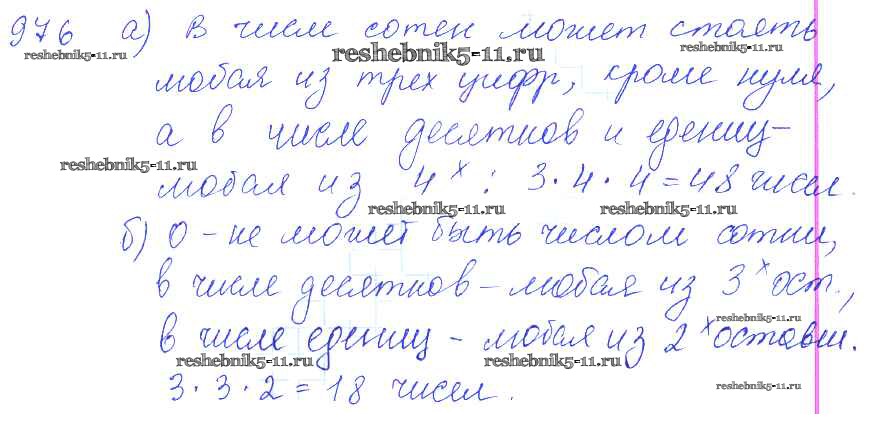 976 а) В числе сотен может стоять
любая из трех цифр, кроме нуля,
а в числе десятков и едениц-
любая из 4х: 3·4·4=48 чисел.
б) 0 - не может быть числом сотни,
в числе десятков - любая из 3х ост.,
в числе едениц - любая из 2х оставш.
3·3·2=18 чисел.
reshebnik5-11.ru
reshebnik5-11.ru
reshebnik5-11.ru
reshebnik5-11.ru
reshebnik5-11.ru
reshebnik5-11.ru
reshebnik5-11.ru
reshebnik5-11.ru
reshebnik5-11.ru
reshebnik5-11.ru